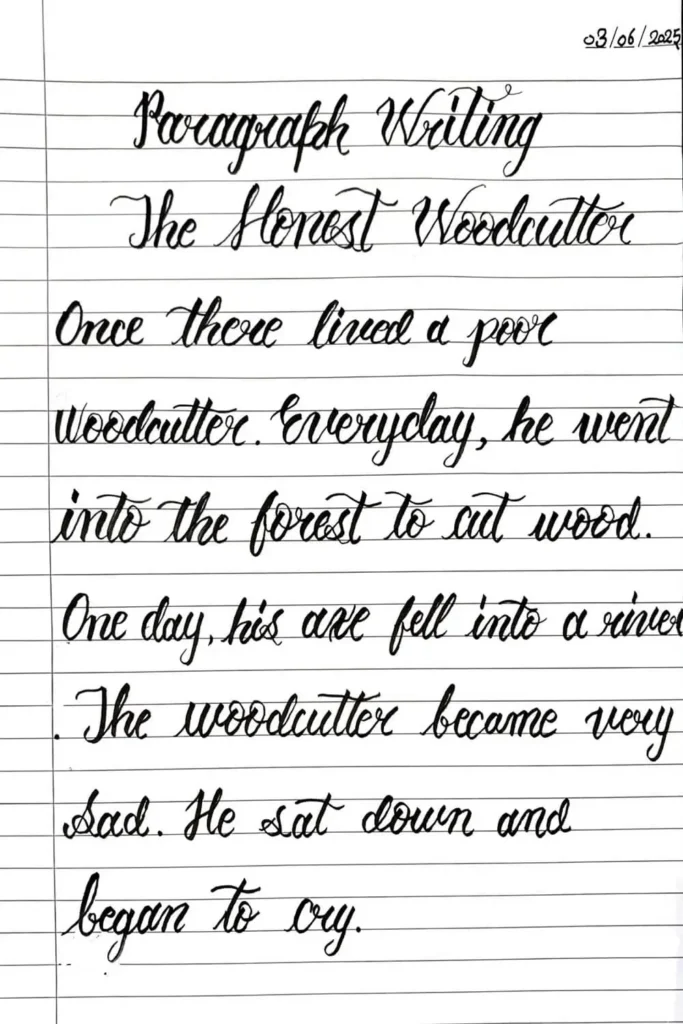 03/06/2025
Paragraph Writing
The Honest Woodcutter
Once there lived a poor
woodcutter. Everyday, he went
into the forest to cut wood.
One day, his axe fell into a river
. The woodcutter became very
sad. He sat down and
began to cry.